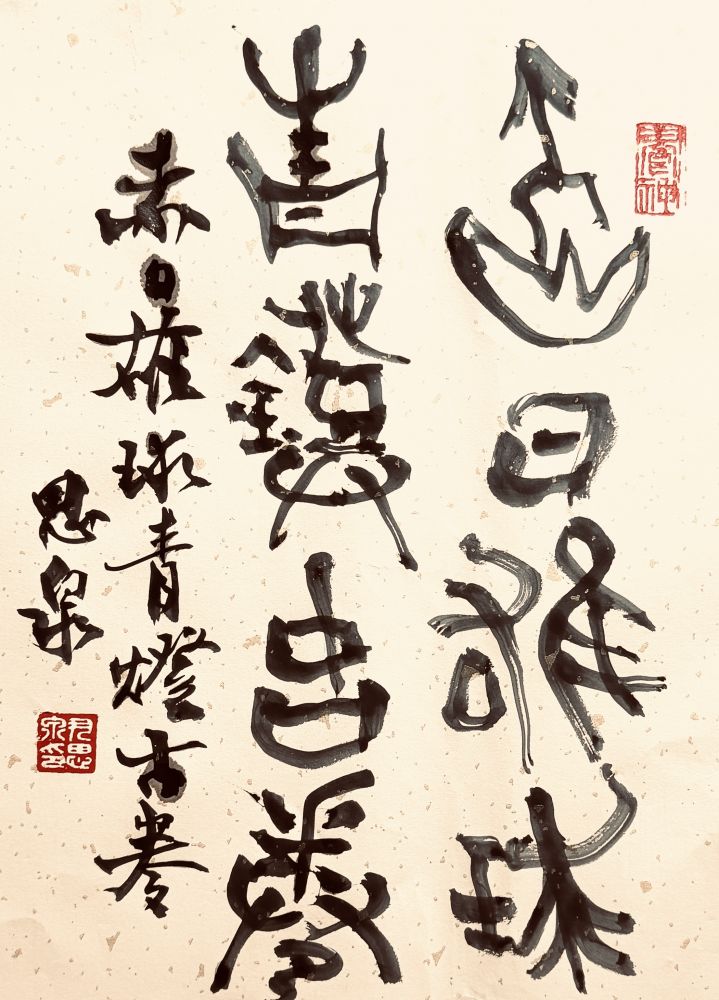 赤日雄球
青镫古卷
赤日雄球青燈古卷
思泉